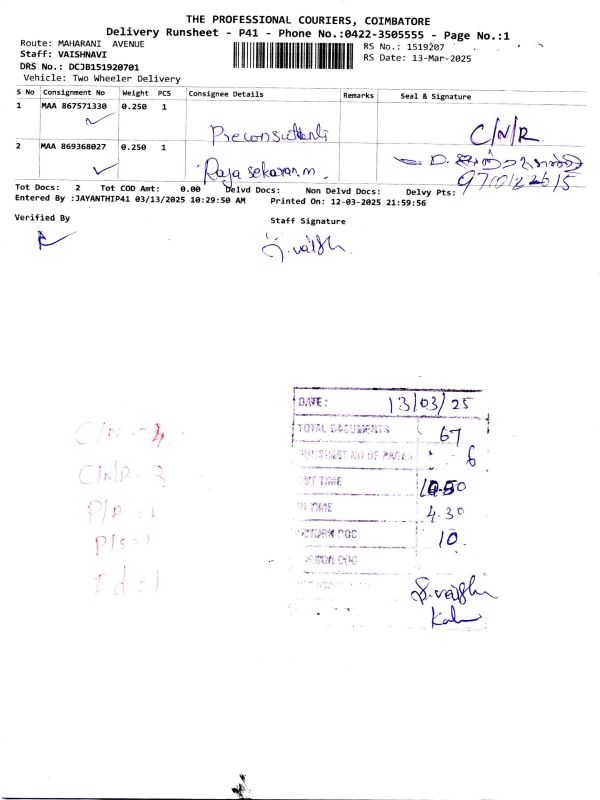 THE PROFESSIONAL COURIERS, COIMBATORE
Delivery Runsheet - P41 - Phone No.:0422-3505555 - Page No.:1
Route: MAHARANI AVENUE
RS No.: 1519207
Staff: VAISHNAVI
RS Date: 13-Mar-2025
DRS No.: DCJB151920701
Vehicle: Two Wheeler Delivery
S No Consignment No Weight PCS Consignee Details Remarks Seal & Signature
1 MAA 867571330 0.250 1
Preconsultanti C/N/R
2 MAA 869368027 0.250 1
Rajasekaran.m.
9710122615
Tot Docs: 2 Tot COD Amt: 0.00 Delvd Docs: Non Delvd Docs: Delvy Pts:
Entered By :JAYANTHIP41 03/13/2025 10:29:50 AM Printed On: 12-03-2025 21:59:56
Verified By Staff Signature
DATE: 13/03/25
C/N - 4
TOTAL DOCUMENTS 67
RUNSHEET NO OF PAGES : 6
C/N/R - 3
OUT TIME 10.50
P/R = 1
IN TIME 4.30
P/S = 1
RETURN DOC 10
Id = 1